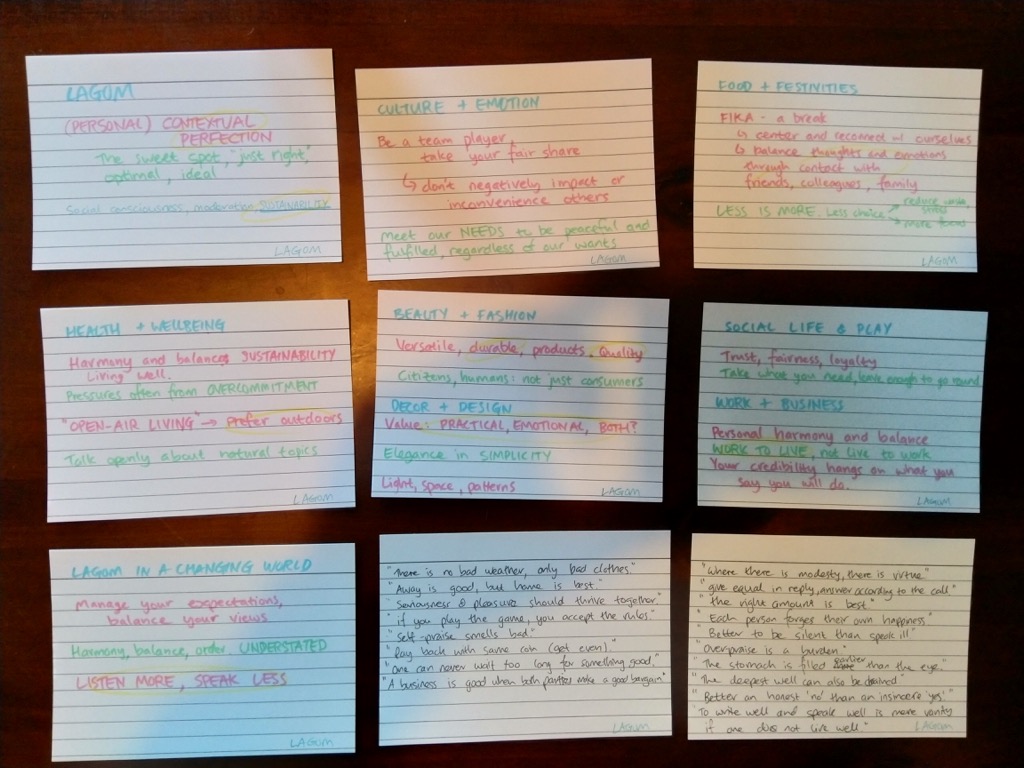 LAGOM
(PERSONAL) CONTEXTUAL
PERFECTION
The sweet spot, "just right",
optimal, ideal
Social consciousness, moderation, SUSTAINABILITY
LAGOM
CULTURE + EMOTION
Be a team player,
take your fair share
↳ don't negatively impact or
inconvenience others
Meet our NEEDS to be peaceful and
fulfilled, regardless of our wants
LAGOM
FOOD + FESTIVITIES
FIKA - a break
↳ center and reconnect w/ ourselves
↳ balance thoughts and emotions
through contact with
friends, colleagues, family
LESS IS MORE. Less choice → reduce waste, stress
→ more food
LAGOM
HEALTH + WELLBEING
Harmony and balance, SUSTAINABILITY
Living well.
Pressures often from OVERCOMMITMENT
"OPEN-AIR LIVING" → prefer outdoors
Talk openly about natural topics
LAGOM
BEAUTY + FASHION
Versatile, durable, products. Quality
Citizens, humans: not just consumers
DECOR + DESIGN
Value: PRACTICAL, EMOTIONAL, BOTH?
Elegance in SIMPLICITY
Light, space, patterns
LAGOM
SOCIAL LIFE & PLAY
Trust, fairness, loyalty
Take what you need, leave enough to go round
WORK + BUSINESS
Personal harmony and balance
WORK TO LIVE, not live to work
Your credibility hangs on what you
say you will do.
LAGOM
LAGOM IN A CHANGING WORLD
Manage your expectations,
balance your views
Harmony, balance, order. UNDERSTATED
LISTEN MORE, SPEAK LESS
LAGOM
"There is no bad weather, only bad clothes."
"Away is good, but home is best"
"Seriousness & pleasure should thrive together"
"if you play the game, you accept the rules"
"Self-praise smells bad"
"Pay back with same coin (get even)."
"One can never wait too long for something good."
"A business is good when both parties make a good bargain"
"Where there is modesty, there is virtue"
"give equal in reply, answer according to the call"
"the right amount is best"
"Each person forges their own happiness"
"Better to be silent than speak ill"
"Overpraise is a burden"
"The stomach is filled earlier than the eye"
"The deepest well can also be drained"
"Better an honest 'no' than an insincere 'yes'"
"To write well and speak well is mere vanity
if one does not live well"
LAGOM